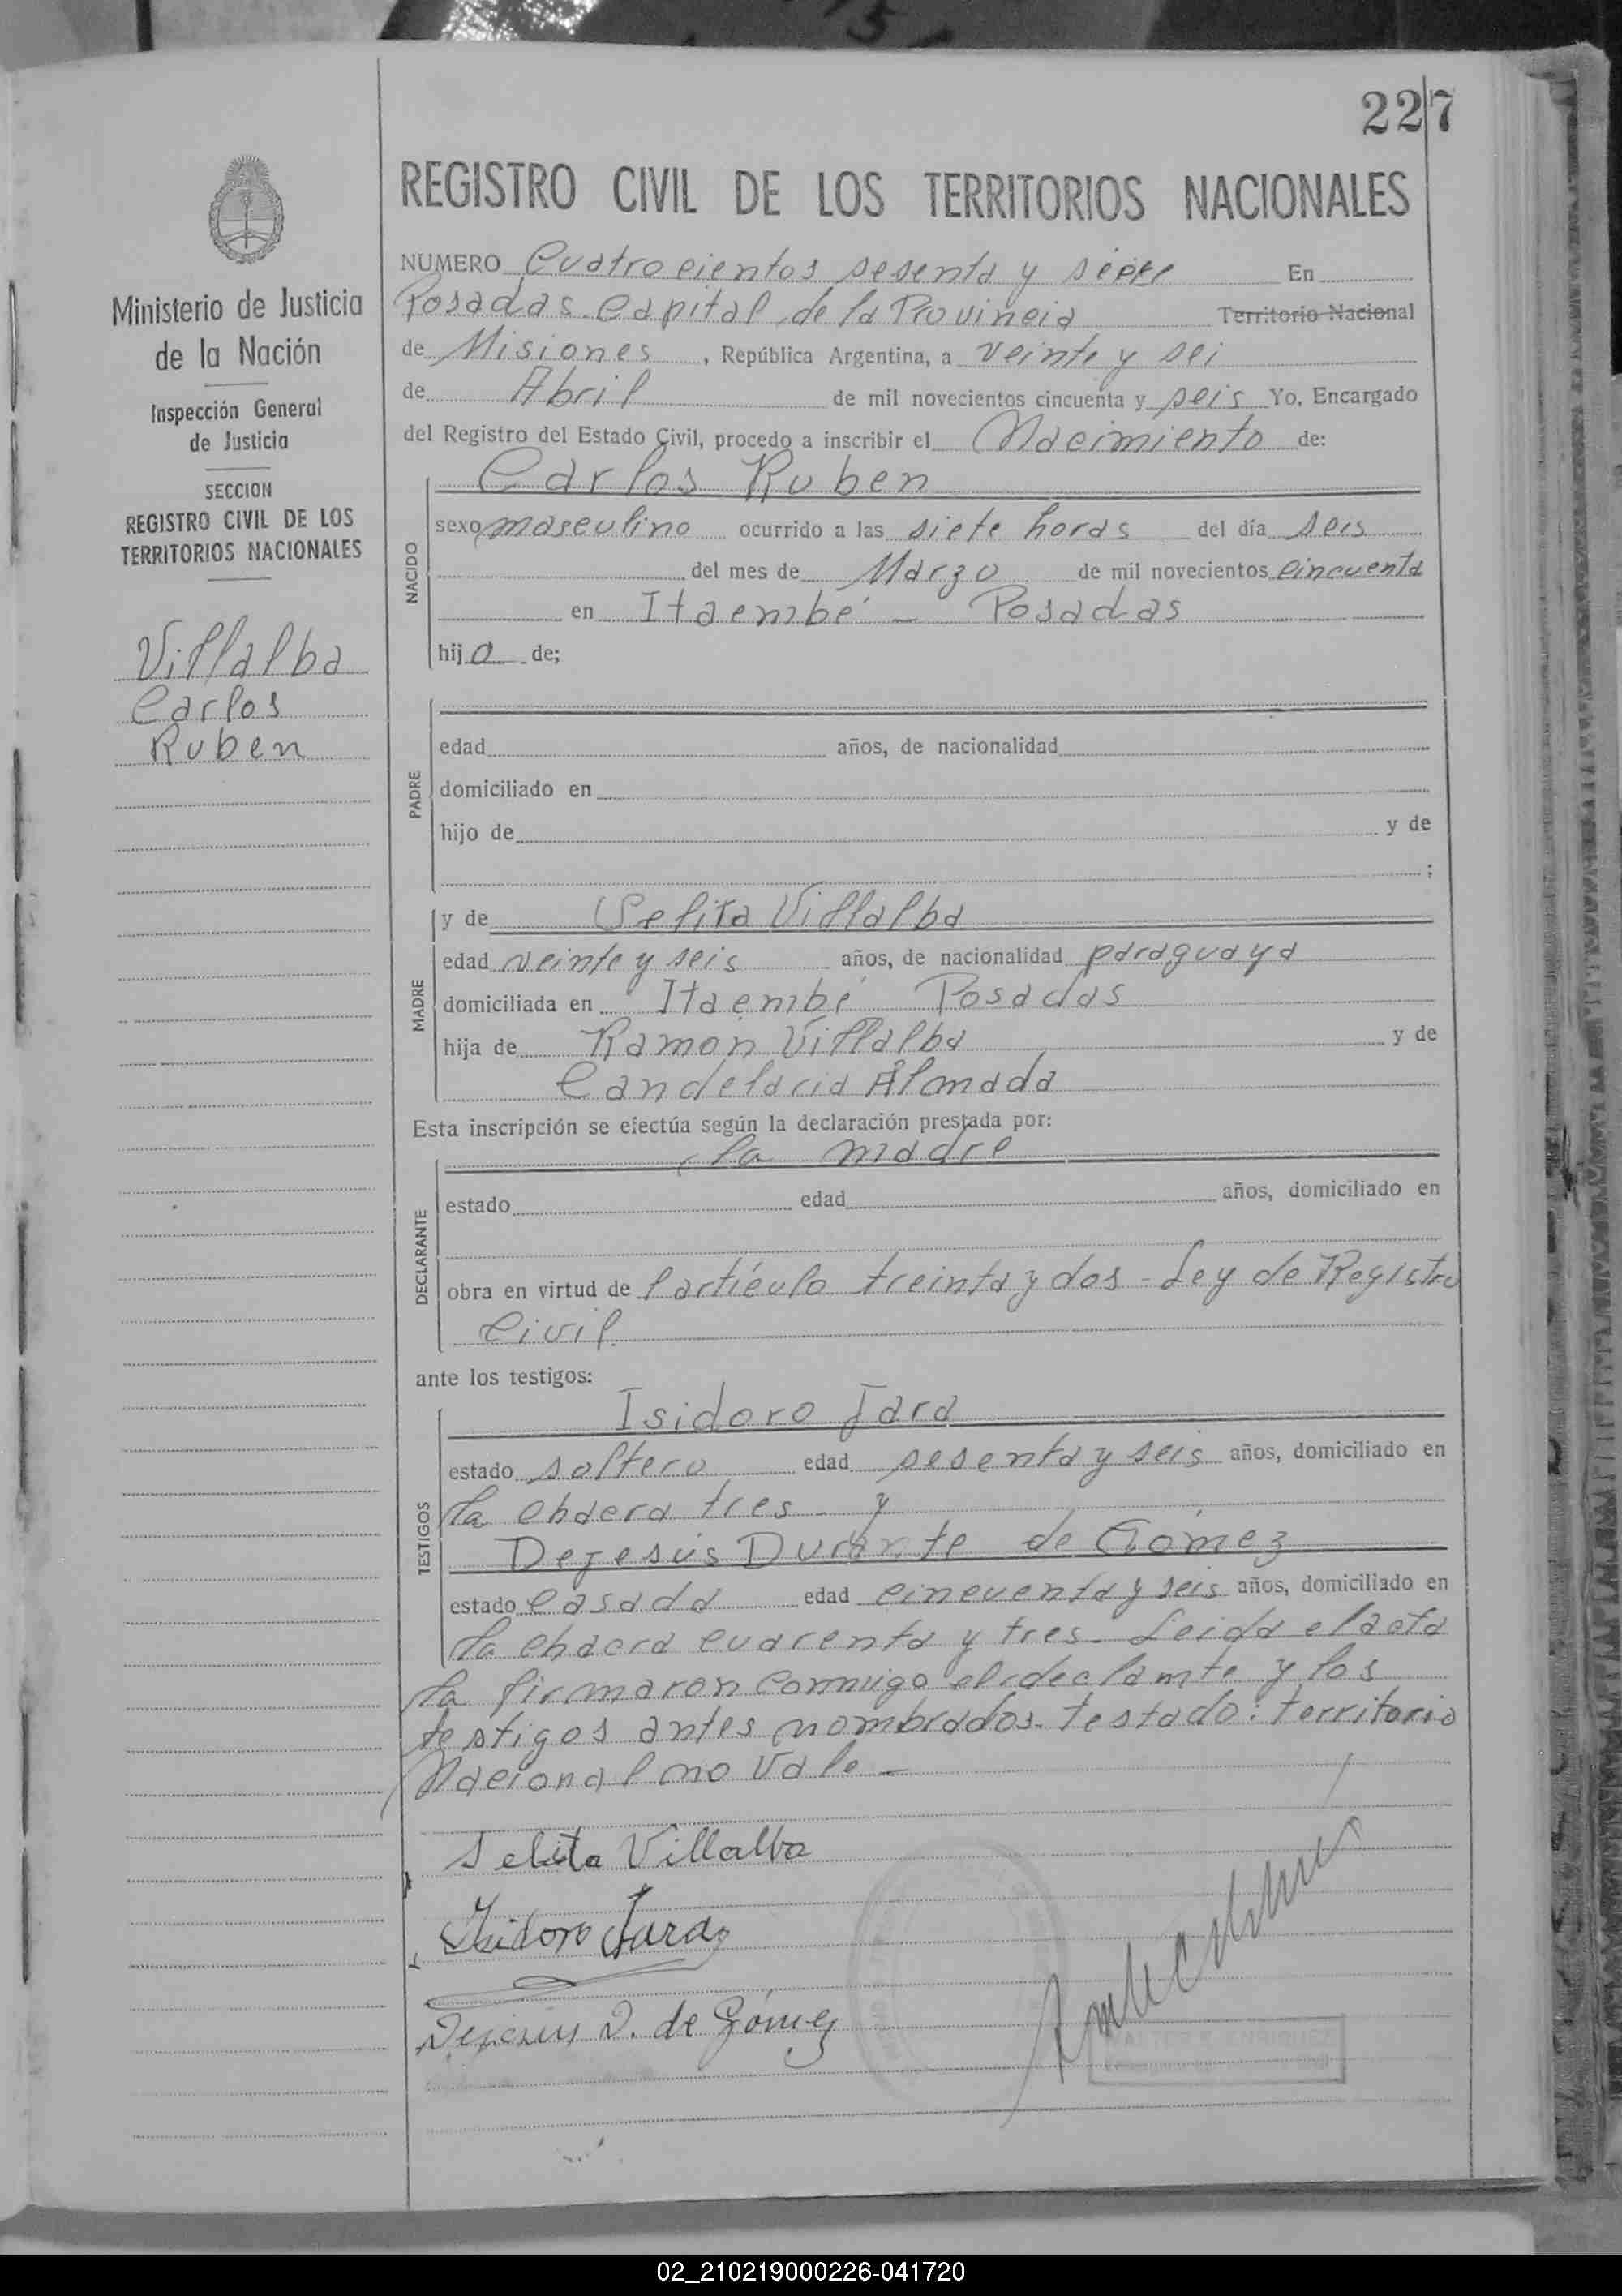 227
REGISTRO CIVIL DE LOS TERRITORIOS NACIONALES
Ministerio de Justicia
de la Nación
Inspección General
de Justicia
SECCION
REGISTRO CIVIL DE LOS
TERRITORIOS NACIONALES
Villalba
Carlos
Ruben
NUMERO Cuatrocientos sesenta y siete En
Posadas Capital de la Provincia Territorio Nacional
de Misiones, República Argentina, a veinte y sei
de Abril de mil novecientos cincuenta y seis Yo, Encargado
del Registro del Estado Civil, procedo a inscribir el Nacimiento de:
NACIDO
Carlos Ruben
sexo masculino ocurrido a las siete horas del día seis
del mes de Marzo de mil novecientos cincuenta
en Itaembé - Posadas
hijo de;
PADRE
edad años, de nacionalidad
domiciliado en
hijo de y de
;
MADRE
y de Selita Villalba
edad veinte y seis años, de nacionalidad paraguaya
domiciliada en Itaembé Posadas
hija de Ramon Villalba y de
Candelaria Almada
Esta inscripción se efectúa según la declaración prestada por:
DECLARANTE
la madre
estado edad años, domiciliado en
obra en virtud de l artículo treinta y dos - Ley de Registro
Civil
ante los testigos:
TESTIGOS
Isidoro Jara
estado soltero edad sesenta y seis años, domiciliado en
la chacra tres - y
Dejesús Duarte de Gómez
estado casada edad cincuenta y seis años, domiciliado en
la chacra cuarenta y tres. Leida el acta
la firmaron conmigo el declamte y los
testigos antes nombrados. Testado: territorio
Nacional no Vale -
Selita Villalba
Isidoro Jara
Dejesus D. de Gómez
02_210219000226-041720